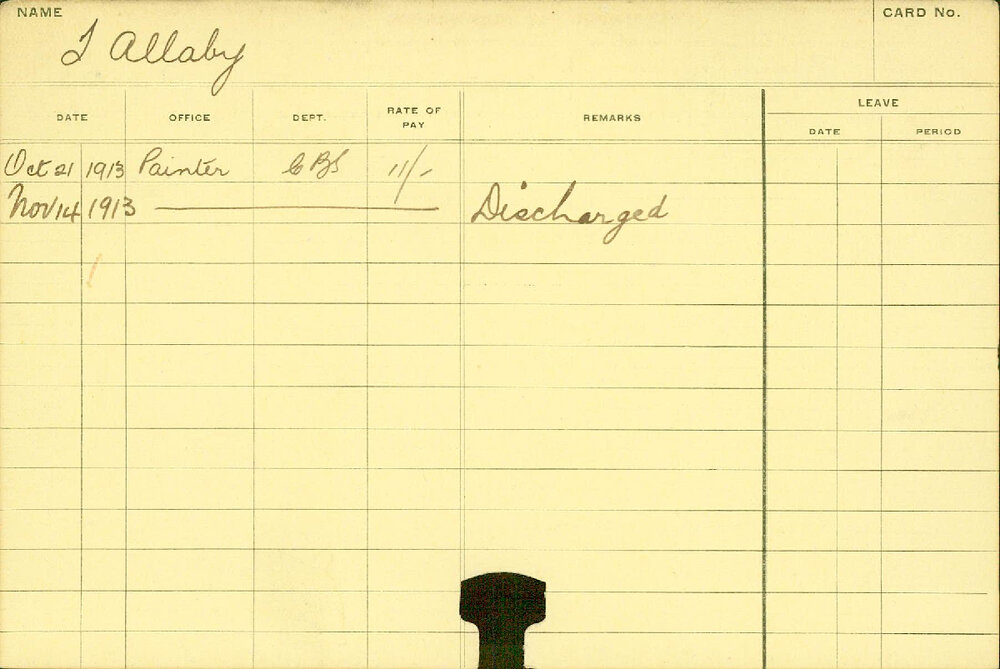 NAME
CARD No.
J Allaby
DATE OFFICE DEPT. RATE OF PAY REMARKS LEAVE
DATE PERIOD
Oct 21 1913 Painter CBS 11/-
Nov 14 1913 Discharged